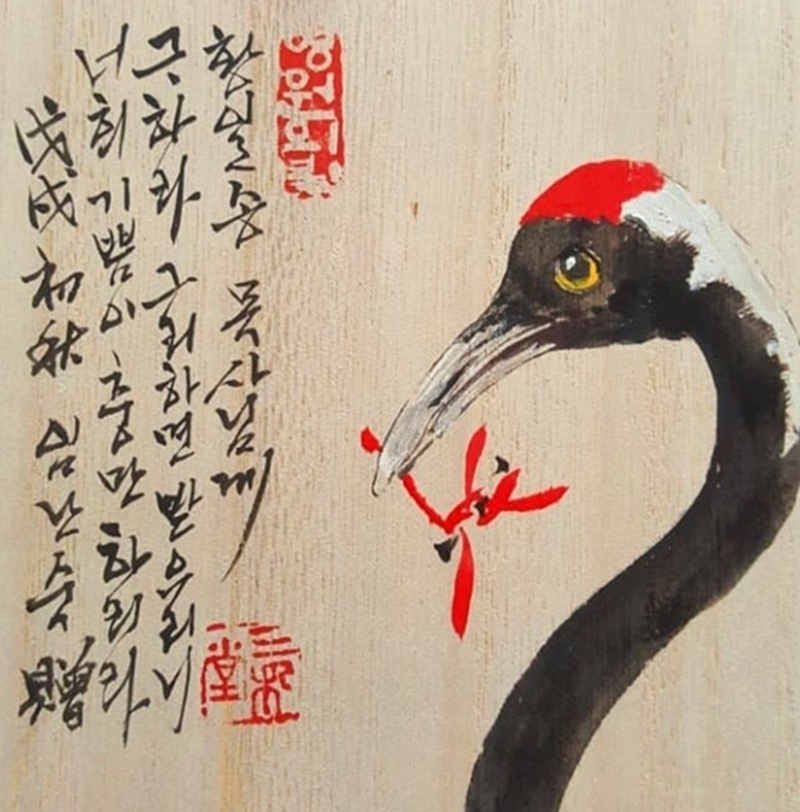 목사님께
구하라 그리하면 받으리니
너희 기쁨이 충만하리라
戊戌 初秋 贈